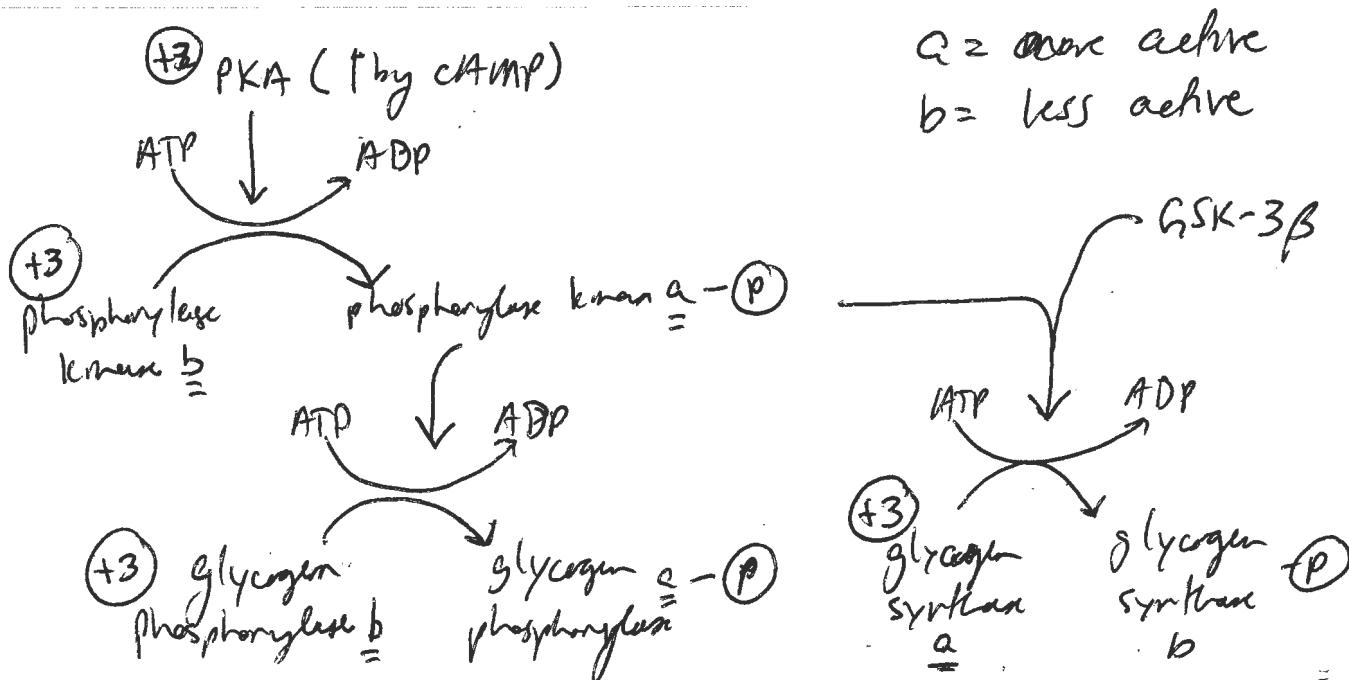 +3 PKA (↑ by cAMP)
a = more active
b = less active
ATP ADP
GSK-3β
+3
phosphorylase
kinase b
phosphorylase kinase a - P
ATP ADP
ATP ADP
+3 glycogen
phosphorylase b
glycogen a - P
phosphorylase
+3
glycogen
synthase
a
glycogen
synthase - P
b